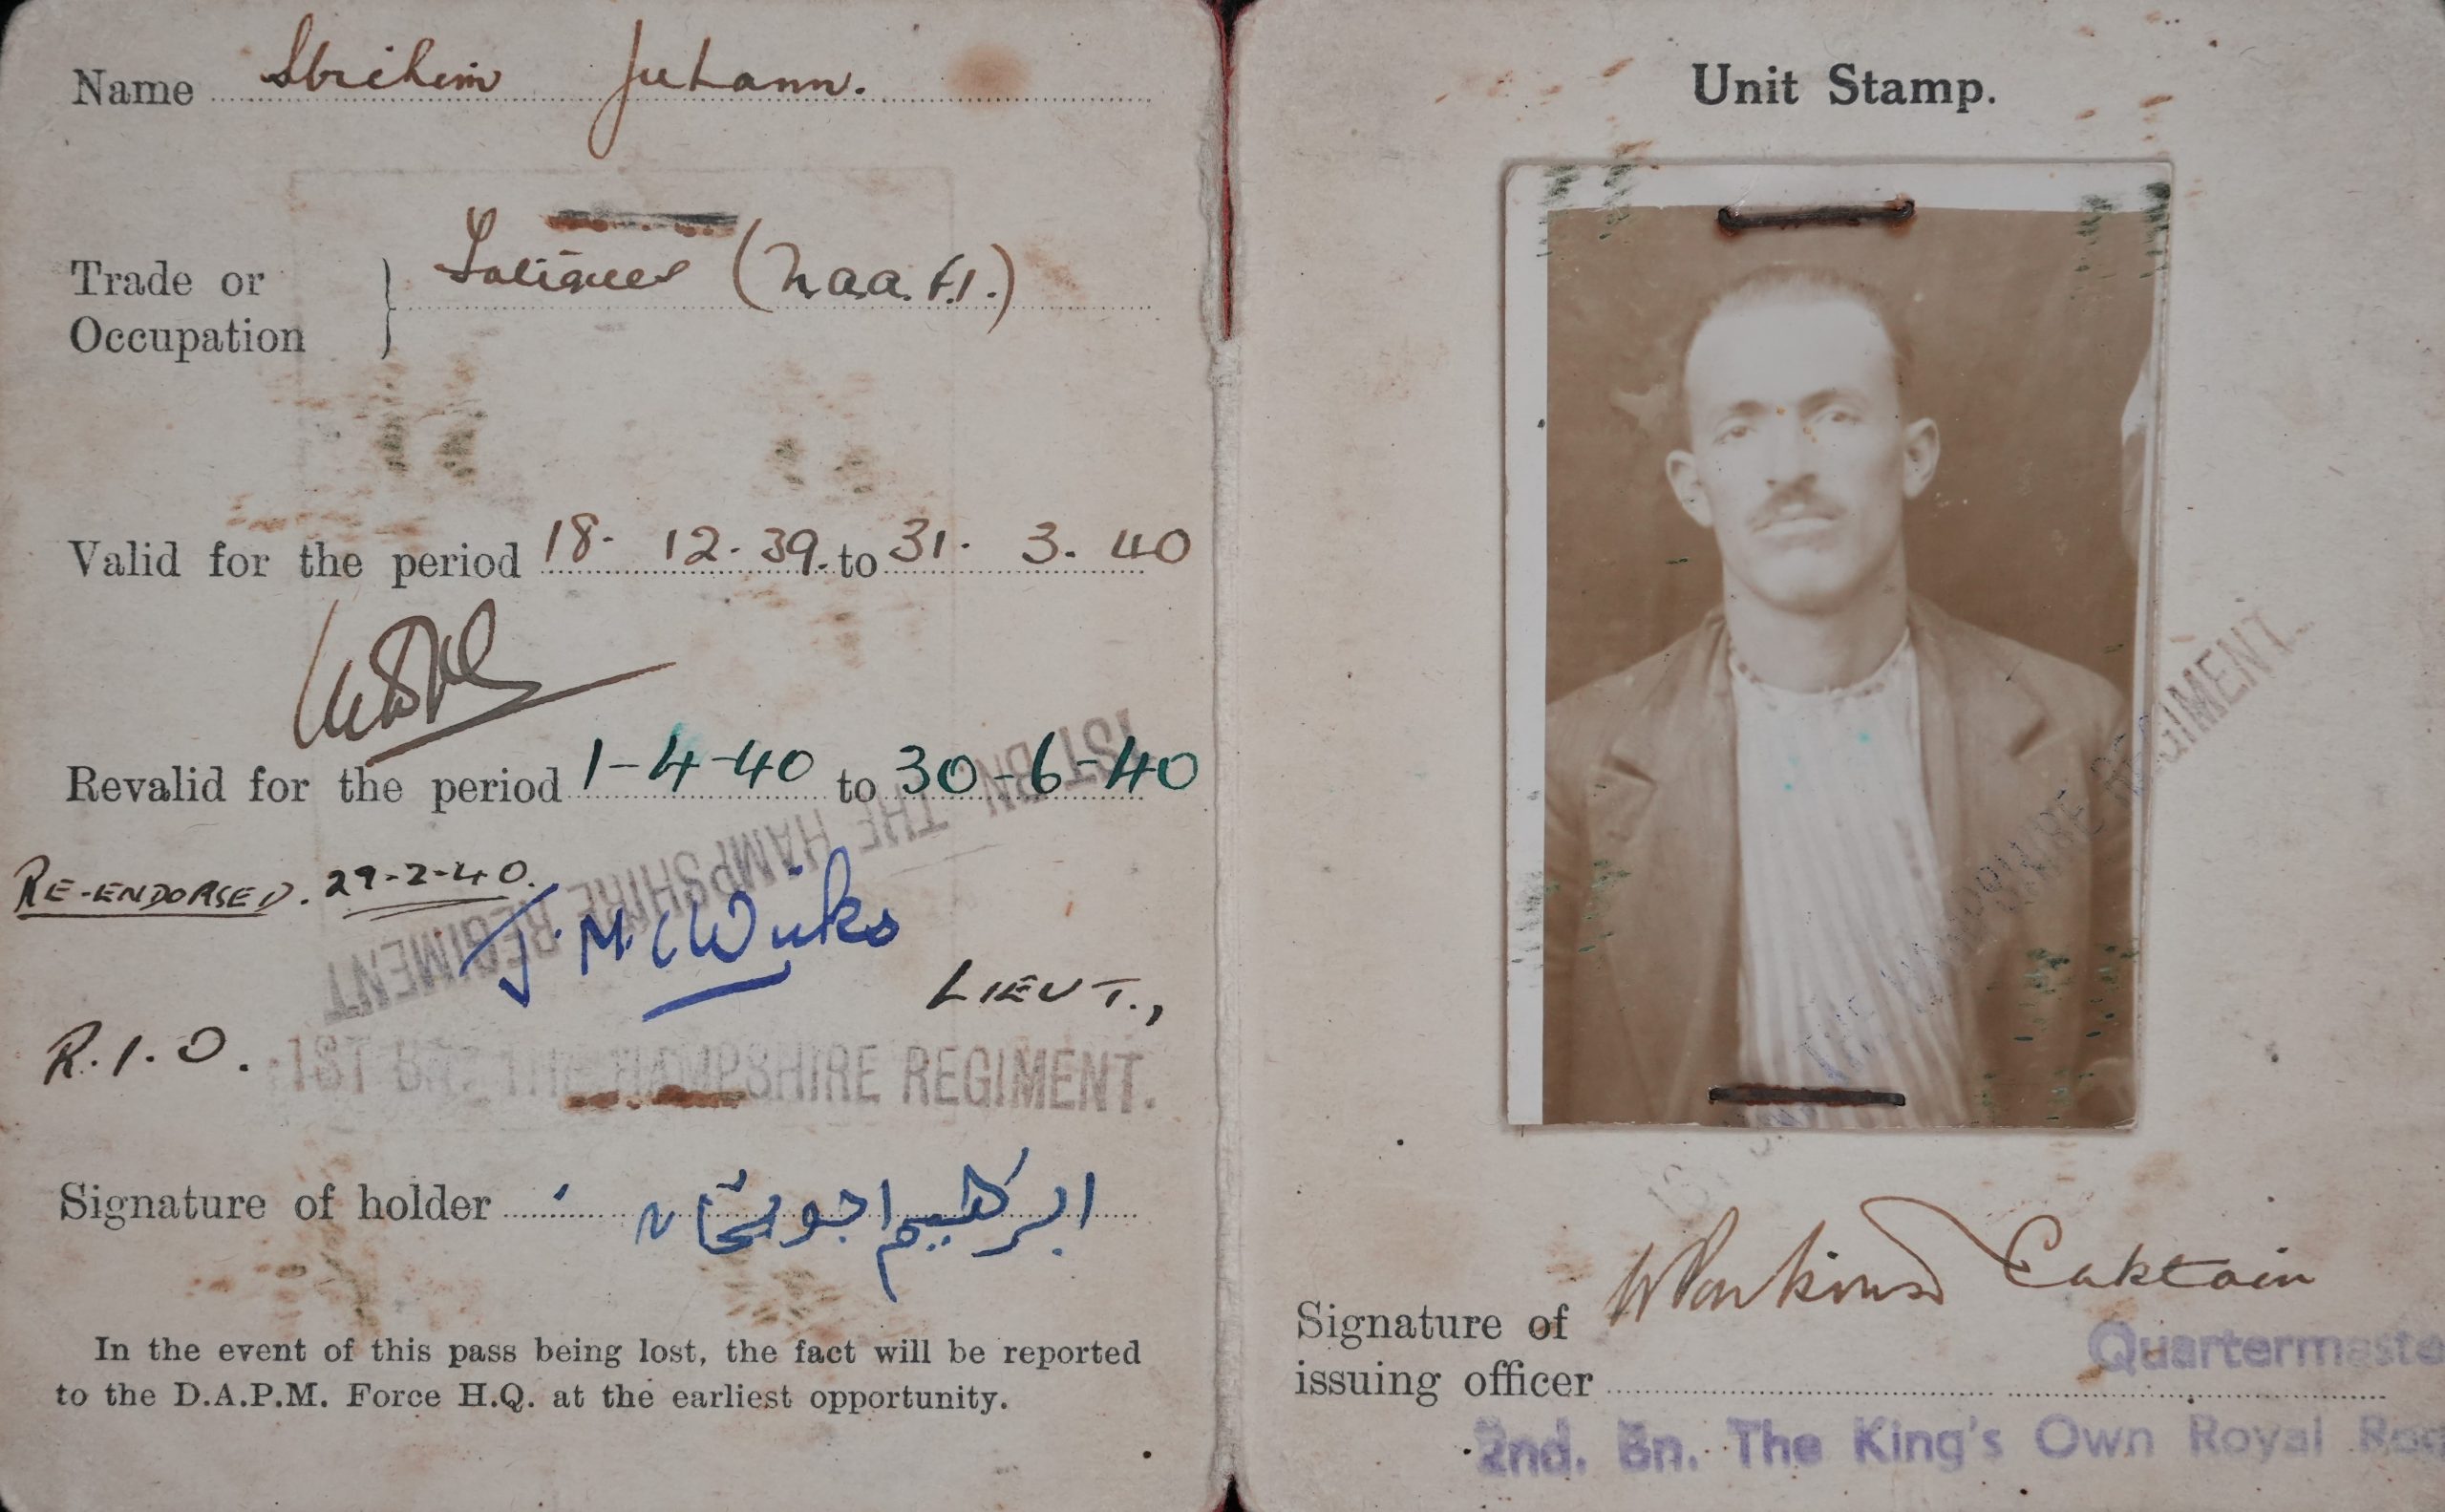 Name Ibrihim Juhann.
Trade or
Occupation } Fatigues (N.a.a.f.I.)
Valid for the period 18. 12. 39. to 31. 3. 40
Revalid for the period 1-4-40 to 30-6-40
1ST BN THE HAMPSHIRE REGIMENT
RE-ENDORSED. 29-2-40.
LIEUT.,
R.I.O.
1ST BN. THE HAMPSHIRE REGIMENT.
Signature of holder ابراهيم
In the event of this pass being lost, the fact will be reported
to the D.A.P.M. Force H.Q. at the earliest opportunity.
Unit Stamp.
1ST BN THE HAMPSHIRE REGIMENT
Signature of
issuing officer Captain
Quartermaste
2nd. Bn. The King's Own Royal Reg